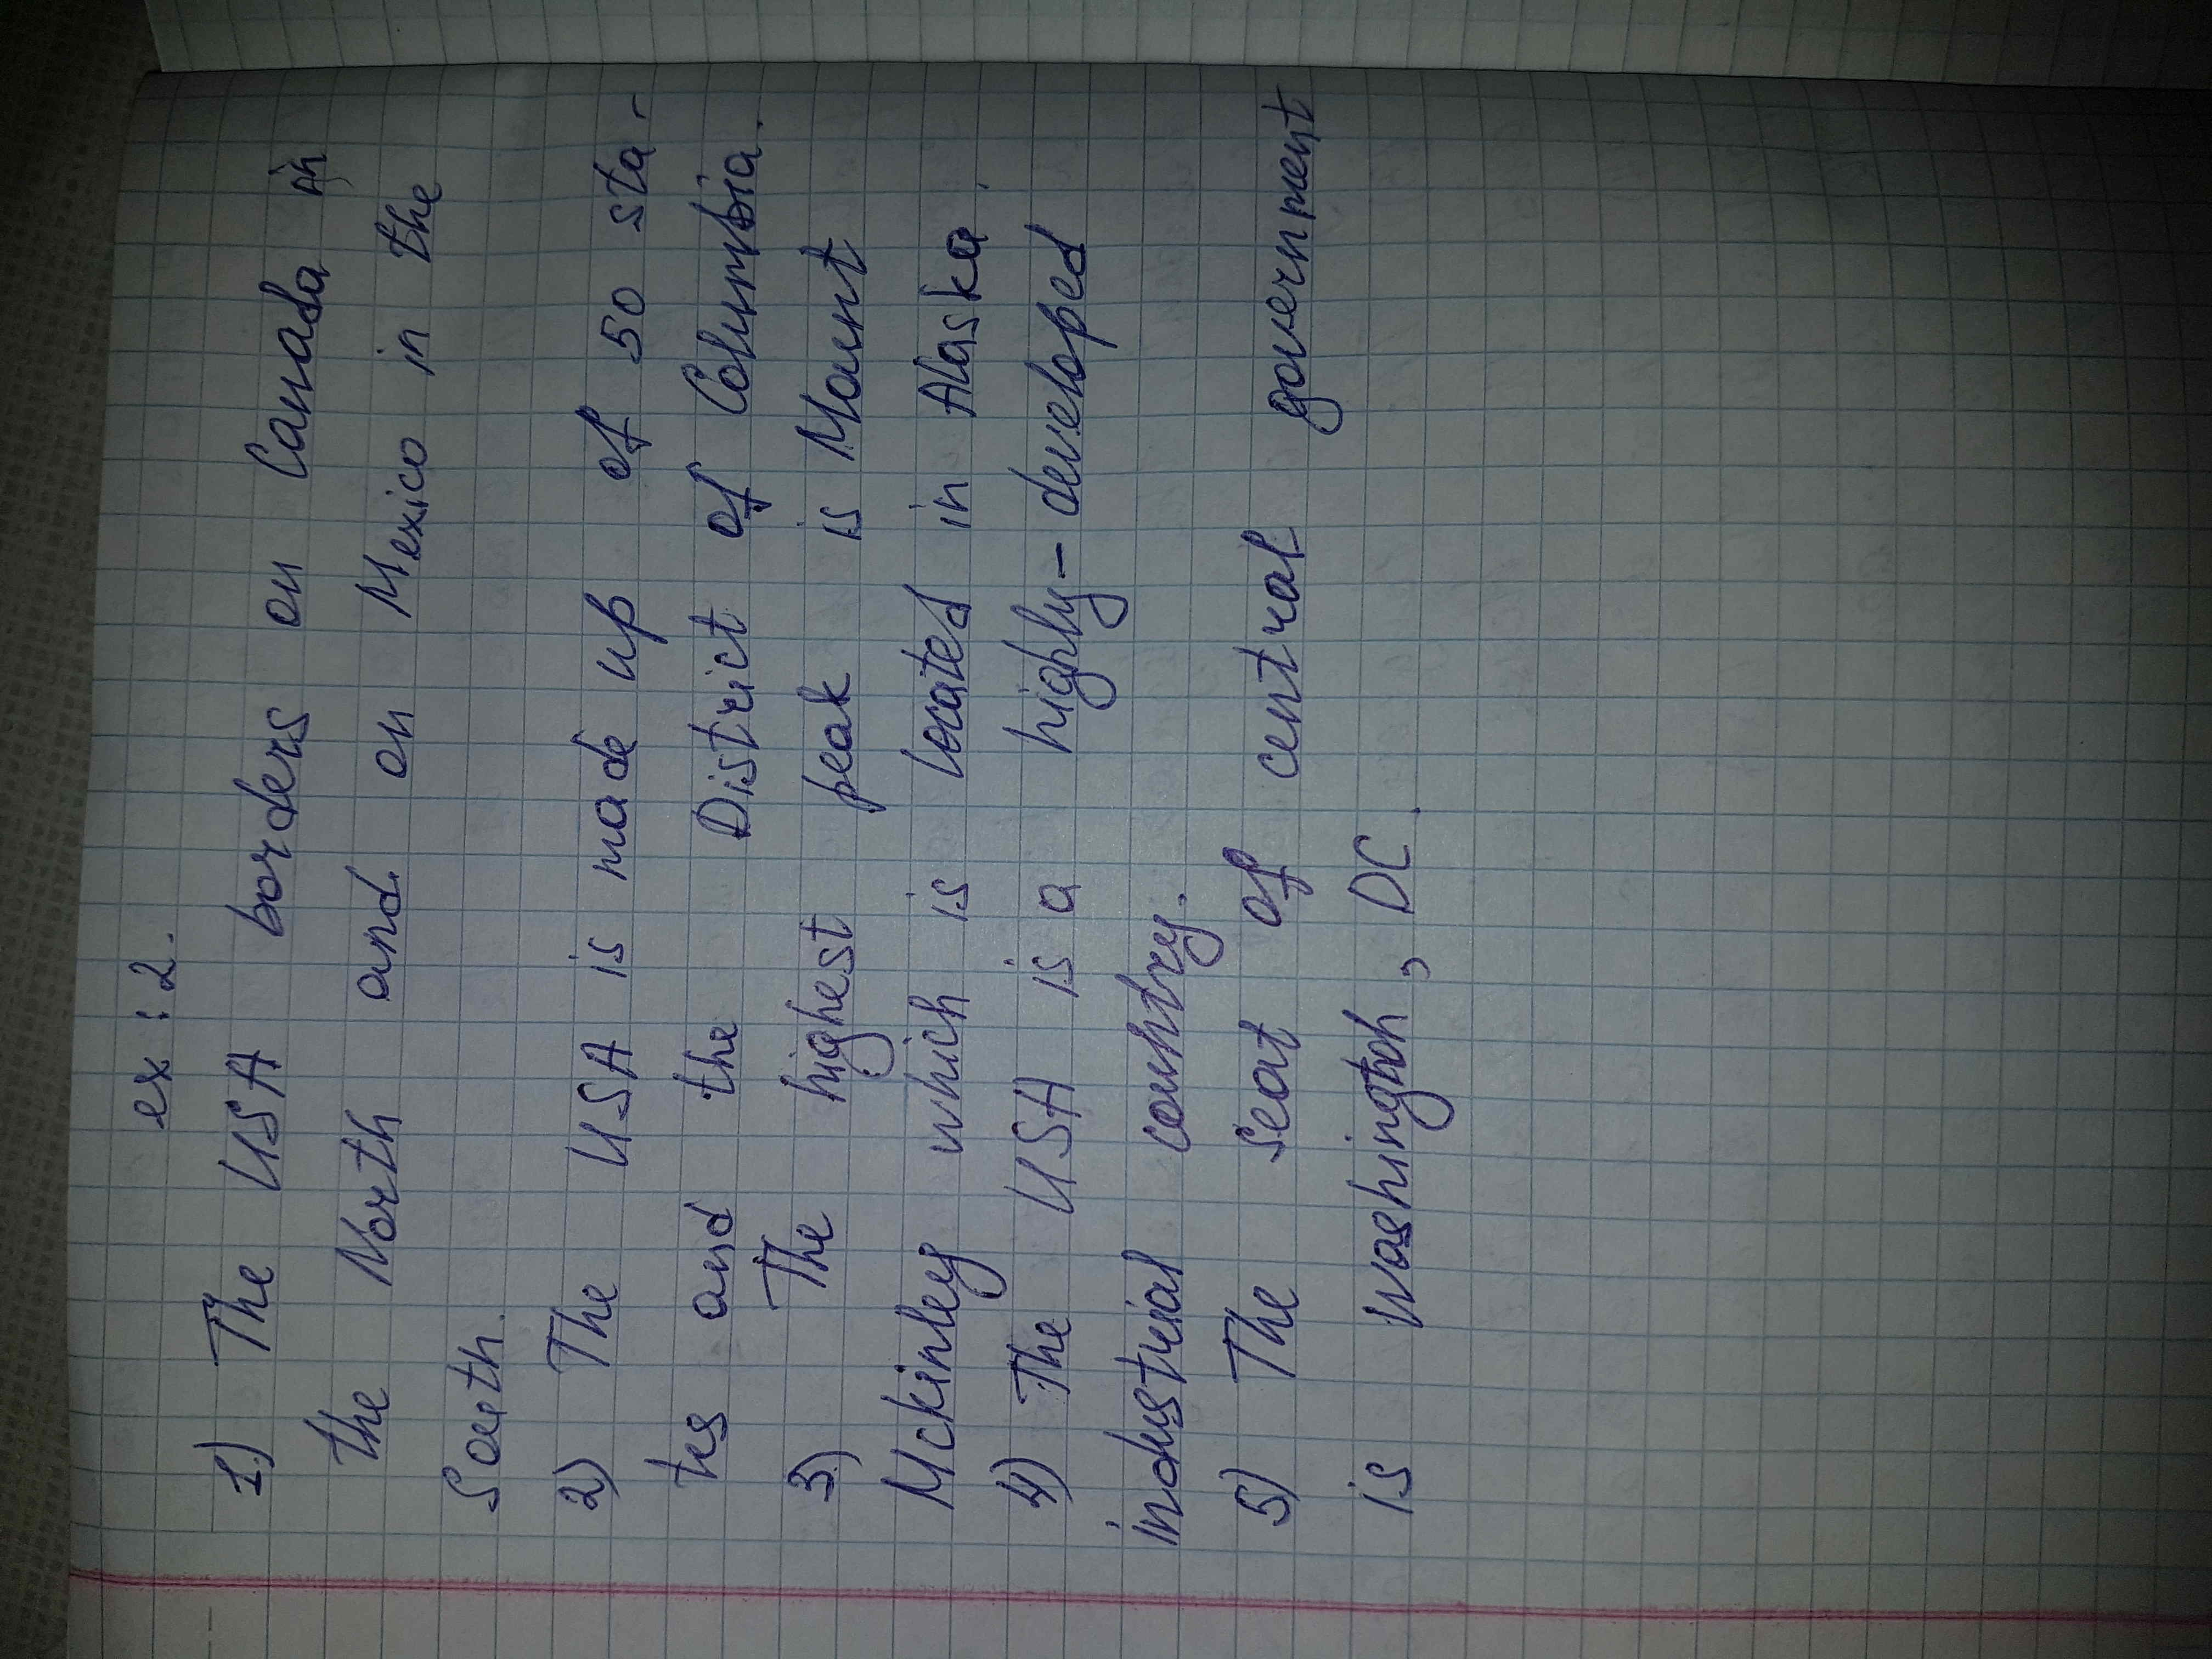 ex: 2.
1) The USA borders on Canada in
the North and on Mexico in the
South.
2) The USA is made up of 50 sta-
tes and the District of Columbia.
3) The highest peak is Mount
McKinley which is located in Alaska.
4) The USA is a highly-developed
industrial country.
5) The seat of central government
is Washington, DC.